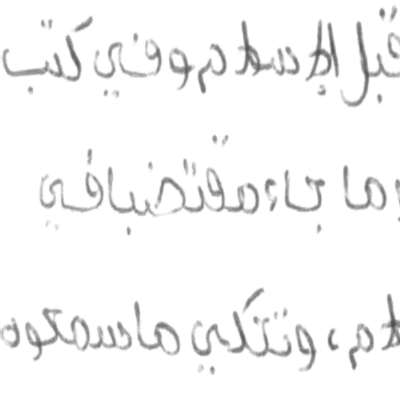 قبل الإسلام وفي كتب
ما جاء مقتضبا في
وتتكئ ما سمعوه